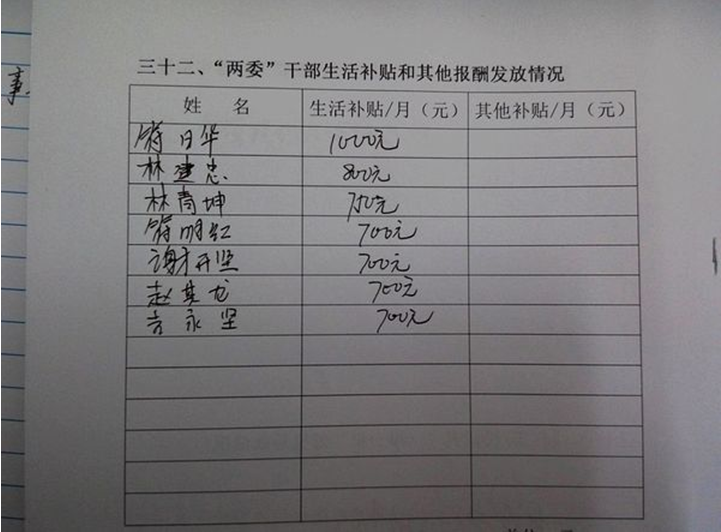 三十二、“两委”干部生活补贴和其他报酬发放情况
姓 名 生活补贴/月（元） 其他补贴/月（元）
符日华 1000元
林建忠 800元
林青坤 750元
符明红 700元
谢开坚 700元
赵其龙 700元
吉永坚 700元
事